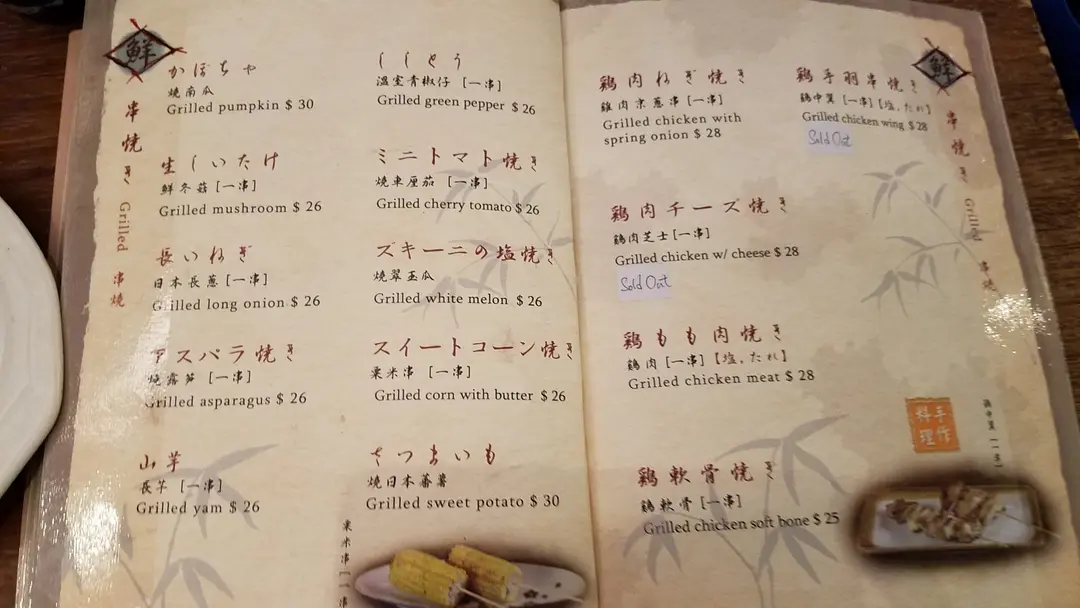 鮮
串焼き
Grilled
串燒
かぼちゃ
燒南瓜
Grilled pumpkin $ 30
生しいたけ
鮮冬菇 [一串]
Grilled mushroom $ 26
長いねぎ
日本長蔥 [一串]
Grilled long onion $ 26
アスパラ焼き
燒露笋 [一串]
Grilled asparagus $ 26
山芋
長芋 [一串]
Grilled yam $ 26
ししとう
溫室青椒仔 [一串]
Grilled green pepper $ 26
ミニトマト焼き
燒車厘茄 [一串]
Grilled cherry tomato $ 26
ズキーニの塩焼き
燒翠玉瓜
Grilled white melon $ 26
スイートコーン焼き
粟米串 [一串]
Grilled corn with butter $ 26
さつまいも
燒日本蕃薯
Grilled sweet potato $ 30
粟米串 [一串
鶏肉ねぎ焼き
雞肉京蔥串 [一串]
Grilled chicken with
spring onion $ 28
鶏肉チーズ焼き
鷄肉芝士 [一串]
Grilled chicken w/ cheese $ 28
Sold Out
鶏もも肉焼き
鷄肉 [一串] [塩,たれ]
Grilled chicken meat $ 28
鶏軟骨焼き
鷄軟骨 [一串]
Grilled chicken soft bone $ 25
鶏手羽串焼き
鷄中翼 [一串] [塩,たれ]
Grilled chicken wing $ 28
Sold Out
鮮
串焼き
Grille
串燒
手作
料理
鷄中翼 [一串]